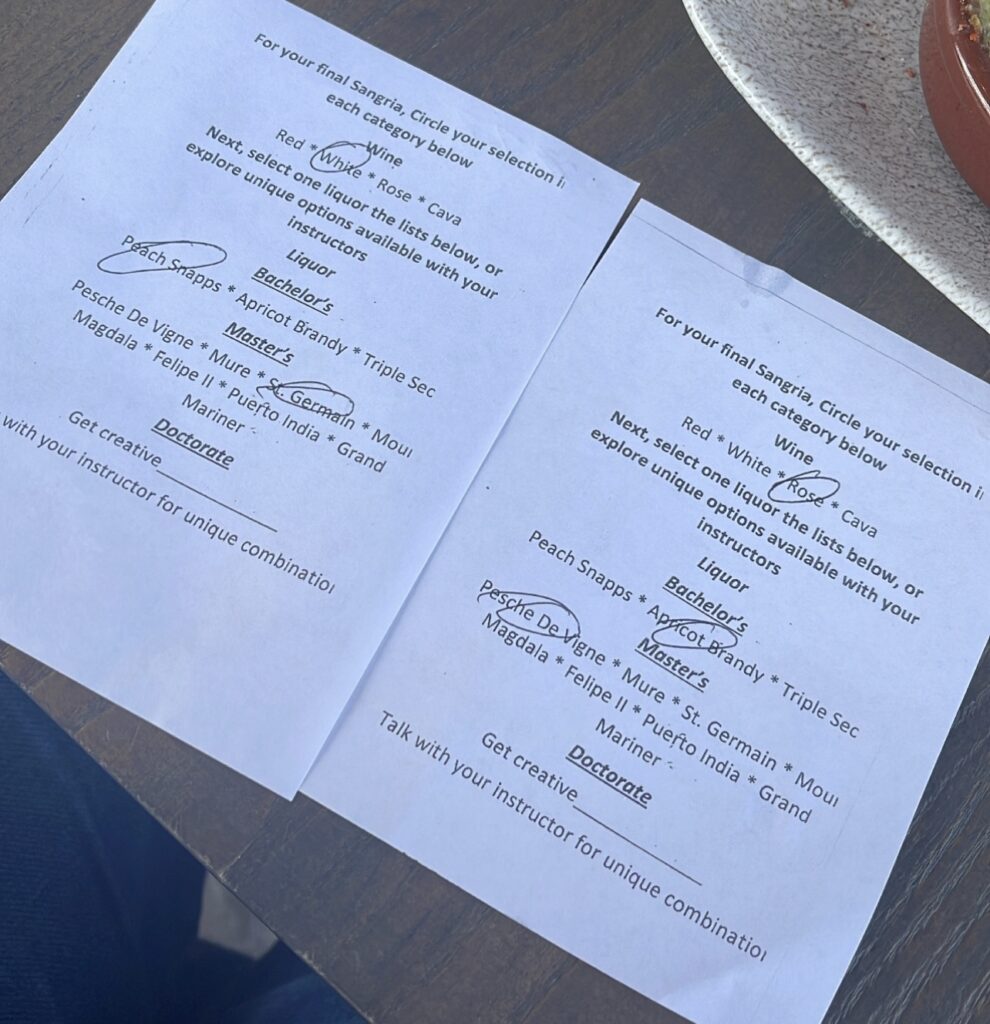 For your final Sangria, Circle your selection i
each category below
Wine
Red * White * Rose * Cava
Next, select one liquor the lists below, or
explore unique options available with your
instructors
Liquor
Bachelor's
Peach Snapps * Apricot Brandy * Triple Sec
Master's
Pesche De Vigne * Mure * St. Germain * Mou
Magdala * Felipe II * Puerto India * Grand
Mariner
Doctorate
Get creative
with your instructor for unique combinatio
For your final Sangria, Circle your selection i
each category below
Wine
Red * White * Rose * Cava
Next, select one liquor the lists below, or
explore unique options available with your
instructors
Liquor
Bachelor's
Peach Snapps * Apricot Brandy * Triple Sec
Master's
Pesche De Vigne * Mure * St. Germain * Mou
Magdala * Felipe II * Puerto India * Grand
Mariner
Doctorate
Get creative
Talk with your instructor for unique combinatio